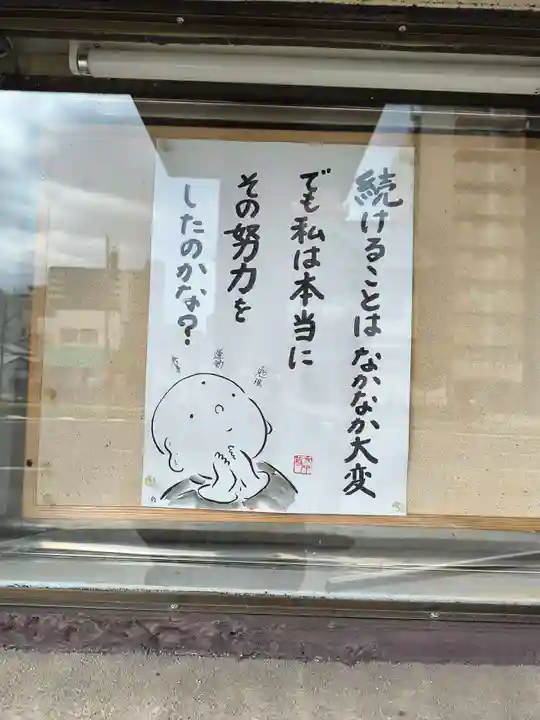 続けることはなかなか大変
でも私は本当に
その努力を
したのかな？
運動